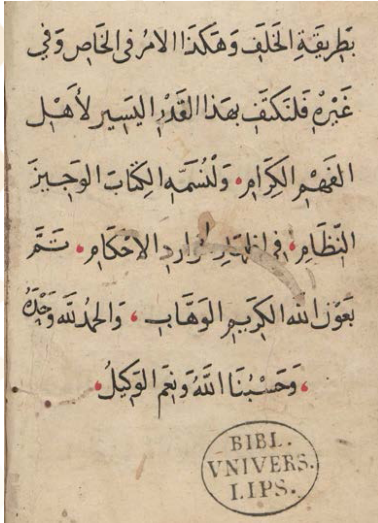 بطريقة الخلف وهكذا الامر في الخاص وفي
غيره فلنكتف بهذا القدر اليسير لأهل
الفهم الكرام ولنسمه الكتاب الوجيز
النظام في اظهار الاحكام تم
بعون الله الكريم الوهاب والحمد لله وحده
وحسبنا الله ونعم الوكيل
BIBL.
VNIVERS.
LIPS.